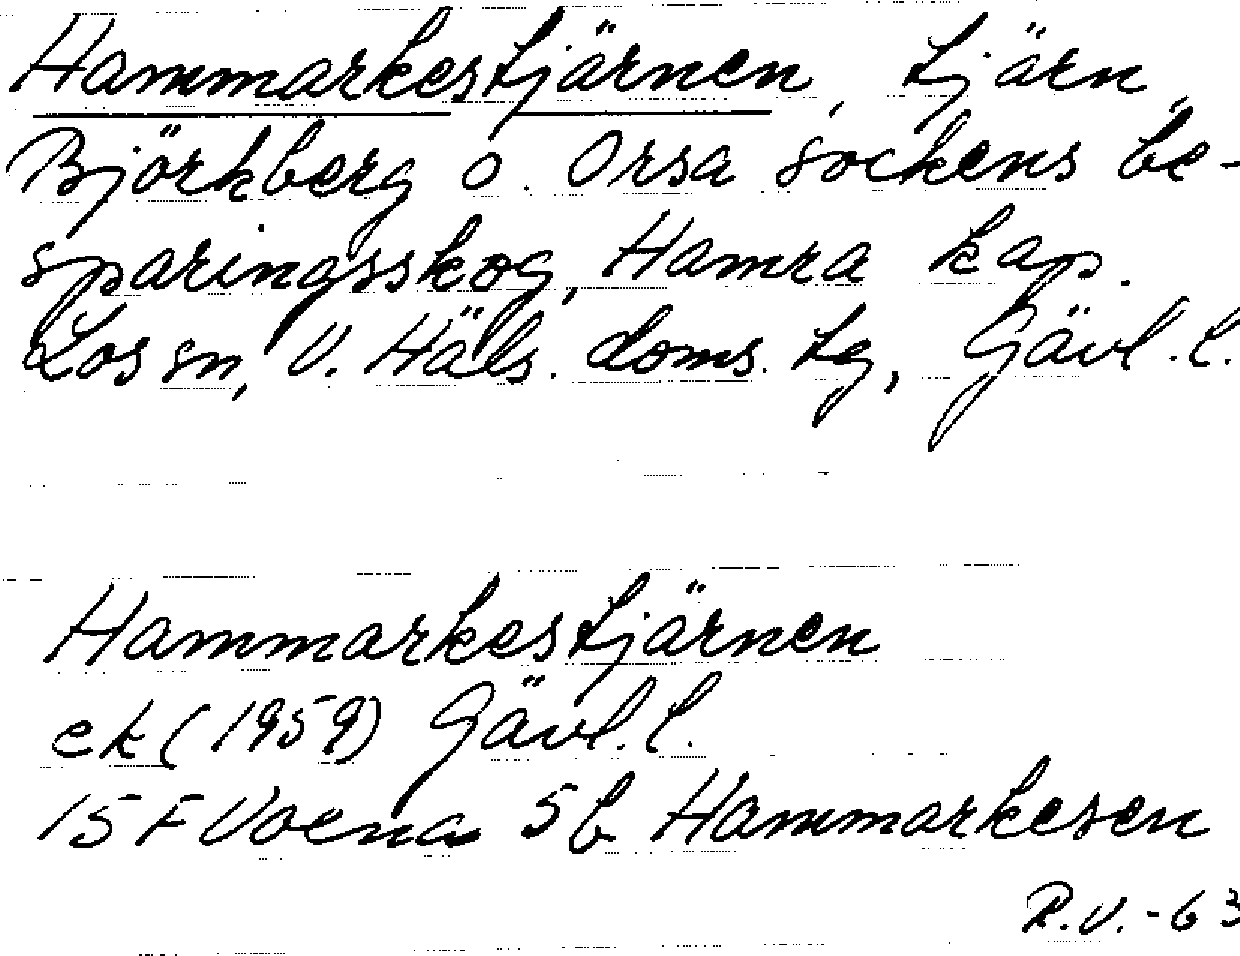 Hammarkestjärnen, tjärn,
Björkberg o. Orsa sockens be-
sparingsskog, Hamra kap.
Los sn, V. Häls. doms. tg, Gävl.l.
Hammarkestjärnen
ek (1959) Gävl.l.
15 F Voxna 5b Hammarkesen
R.V.-63